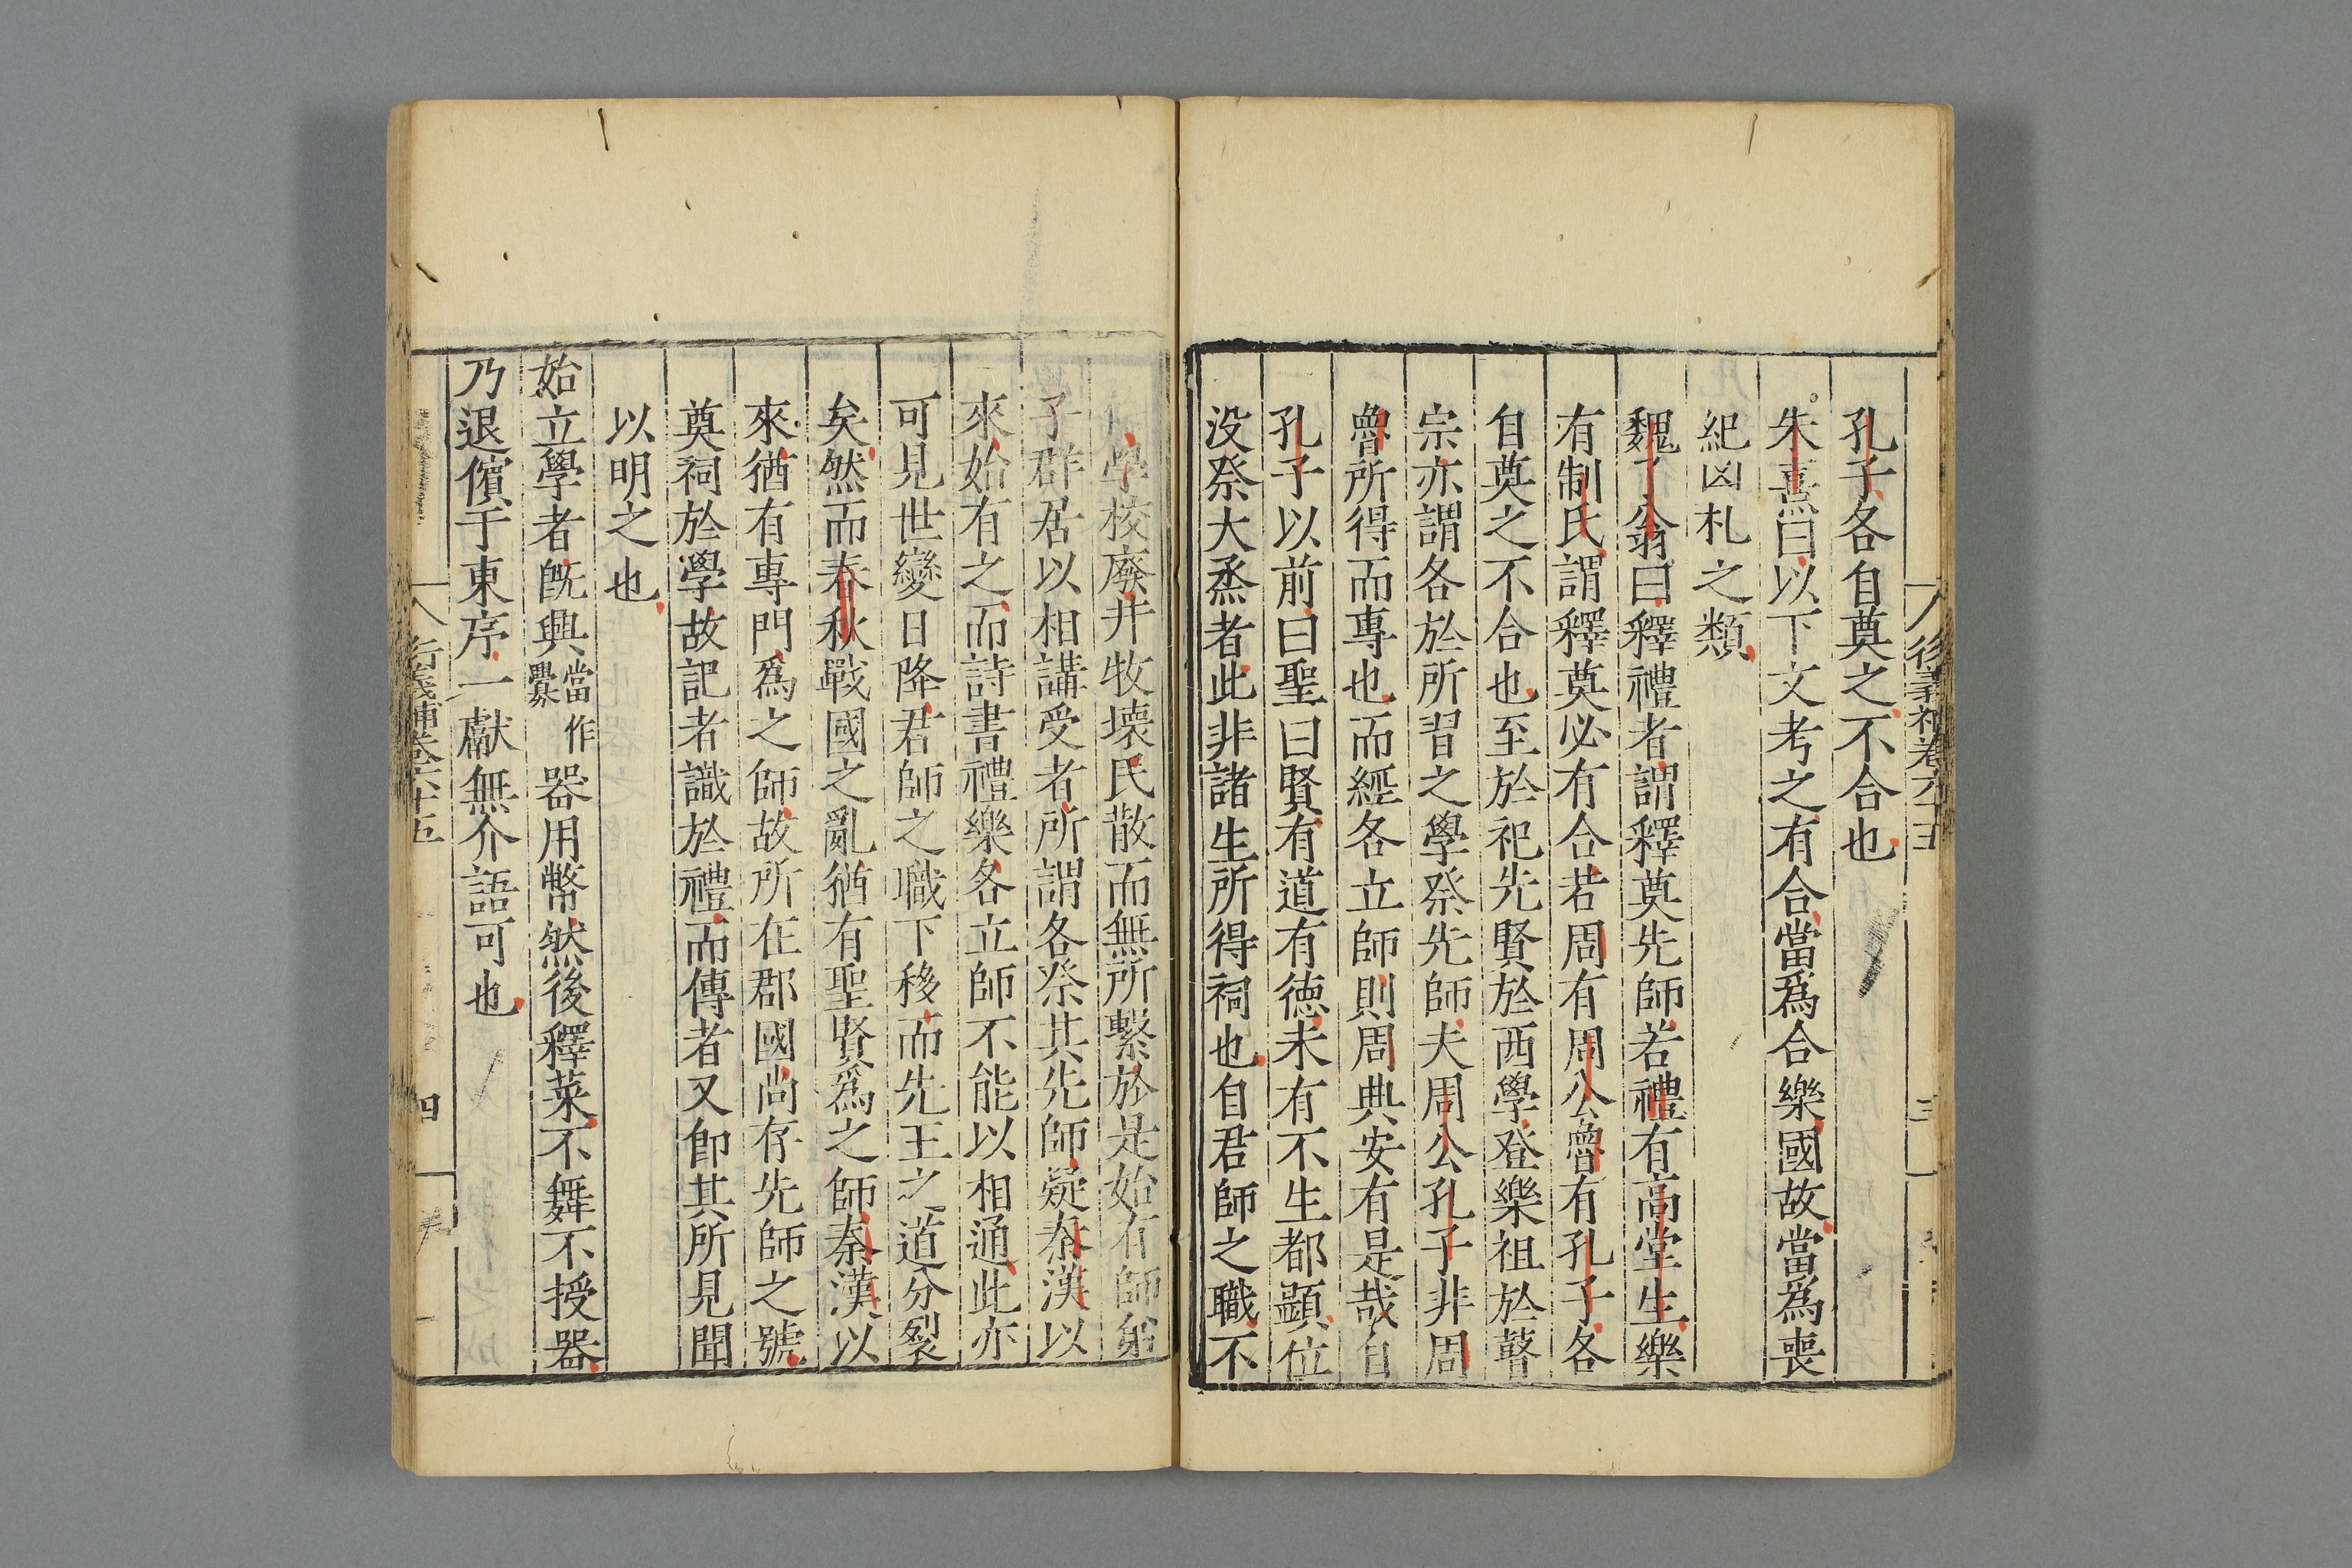 孔子各自奠之不合也
朱熹曰以下文考之有合當爲合樂國故當爲喪
紀凶札之類
魏了翁曰釋禮者謂釋奠先師若禮有高堂生樂
有制氏謂釋奠必有合若周有周公魯有孔子各
自奠之不合也至於祀先賢於西學登樂祖於瞽
宗亦謂各於所習之學祭先師夫周公孔子非周
魯所得而專也而經各立師則周典安有是哉自
孔子以前曰聖曰賢有道有德未有不生都顯位
没祭大烝者此非諸生所得祠也自君師之職不
學校廢井牧壊民散而無所繫於是始有師弟
子群居以相講受者所謂各祭其先師疑秦漢以
來始有之而詩書禮樂各立師不能以相通此亦
可見世變日降君師之職下移而先王之道分裂
矣然而春秋戰國之亂猶有聖賢爲之師秦漢以
來猶有專門爲之師故所在郡國尚存先師之號
奠祠於學故記者識於禮而傳者又卽其所見聞
以明之也
始立學者旣興當作釁器用幣然後釋菜不舞不授器
乃退儐于東序一獻無介語可也
衍義補卷六十五 四